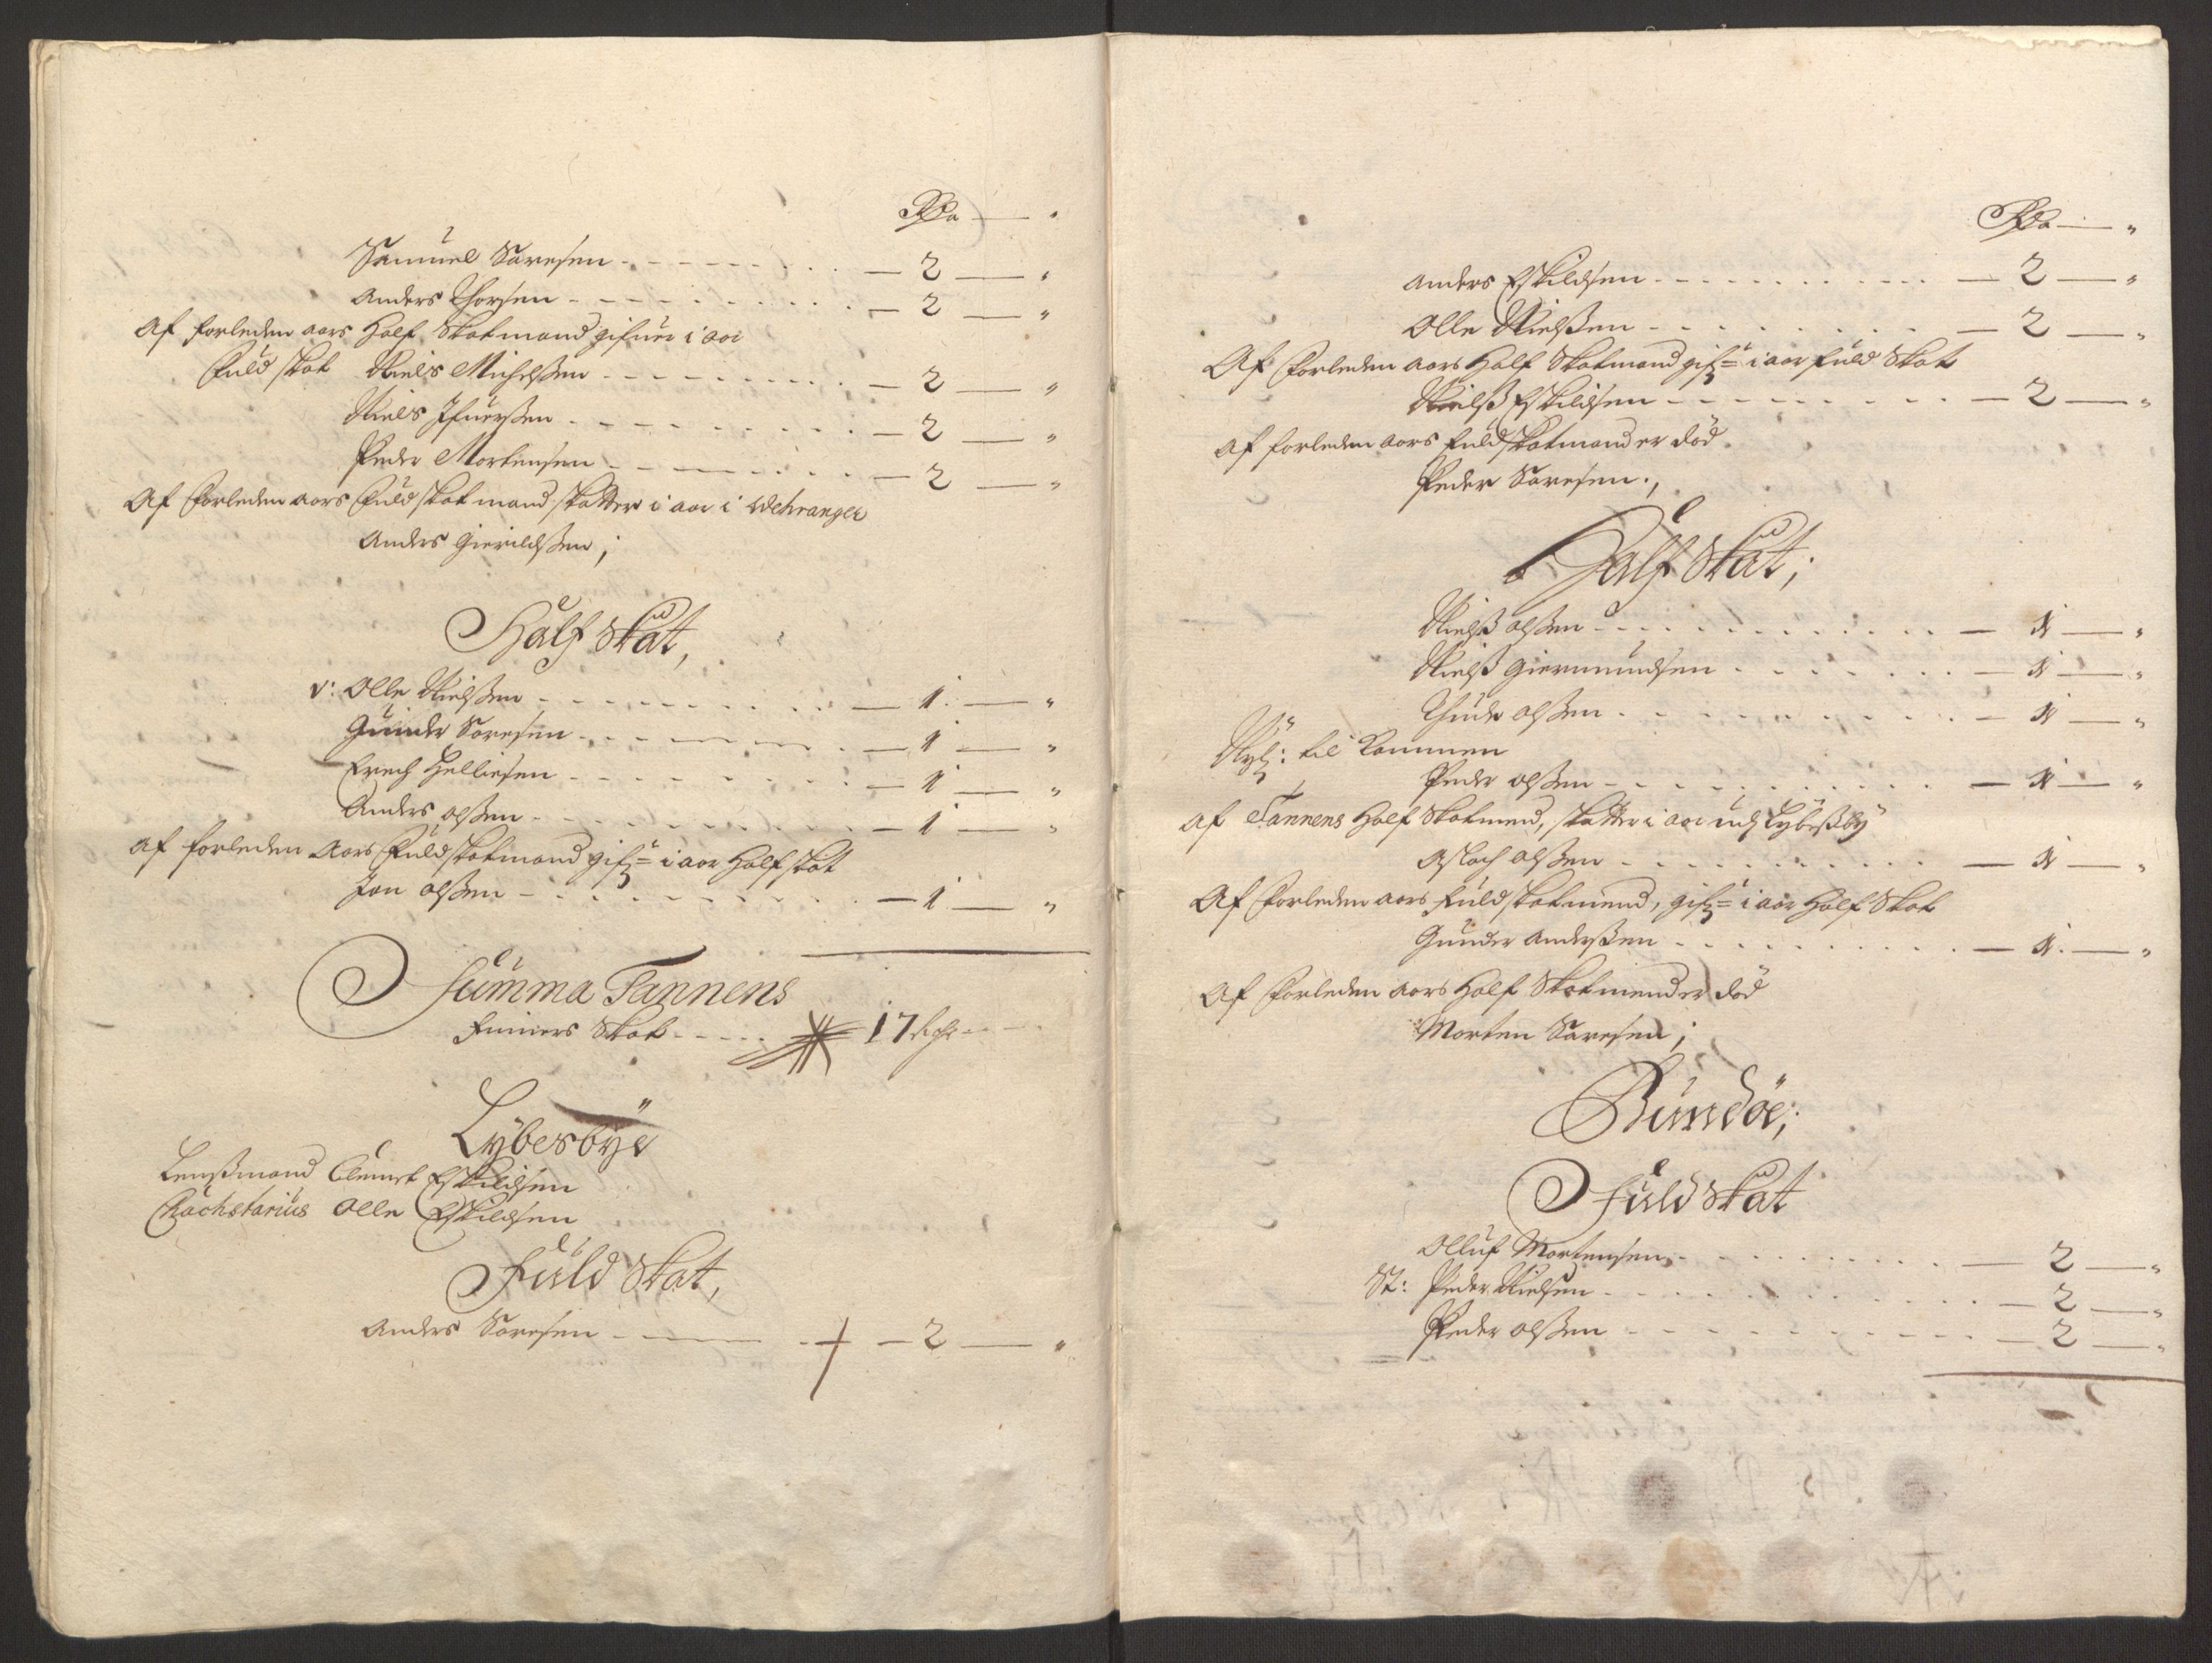 Rdr — "
Samuel Saresen - - - - - - — 2 — "
Anders Thorsen - - - - - - — 2 — "
Af forleden aars Half Skatmand gifuer i aar
Fuld skat Niels Michelßen - - - - - - — 2 — "
Niels Ifuerßen - - - - - - — 2 — "
Peder Mortensen - - - - - - — 2 — "
Af Forleden aars Fuld skatmand skatter i aar i Wehranger
Anders Gierildßen;
Half Skat,
v: Olle Nielßen - - - - - - — 1 — "
Gunder Saresen - - - - - - — 1 — "
Erech Helliesen - - - - - - — 1 — "
Anders Olßen - - - - - - — 1 — "
Af forleden Aars Fuld skatmand gifr i aar Half skat
Jon Olßen - - - - - - — 1 — "
Summa Tannens
Finners Skat - - - - 17 Rdr - -
Lybesbÿe
Lenßmand Clemet Eskildsen
Rachstarius Olle Eskildsen
Fuld Skat,
Anders Saresen - - - - — 2 — "
Rdr — "
Anders Eskildsen - - - - - - — 2 — "
Olle Nielßen - - - - - - — 2 — "
Af Forleden aars Half Skatmand gifr i aar fuld Skat
Nielß Eskildsen - - - - - - — 2 — "
Af forleden aars fuld skatmand er död
Peder Saresen.,
Half Skat;
Nielß Olßen - - - - - - — 1 — "
Nielß Giermundsen - - - - - - — 1 — "
Thude Olßen - - - - - - — 1 — "
Nyl: til kommen
Peder Olßen - - - - - - — 1 — "
Af Tannens Half Skatmend, skatter i aar udj Lybeßbÿ
Aslach Olßen - - - - - - — 1 — "
Af Forleden aars fuld skatmend, gifr i aar Half Skat
Gunder Anderßen - - - - - - — 1 — "
Af Forleden aars Half Skatmend er död
Morten Saresen;
Rundöe;
Fuld Skat
Olluf Mortensen - - - - - - — 2 — "
St: Peder Nielsen - - - - - - — 2 — "
Peder Olßen - - - - - - — 2 — "